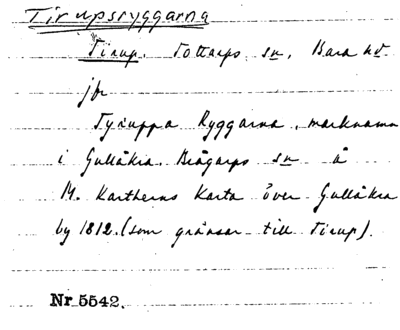 Tirupsryggarna
Tirup. Tottarps sn, Bara hd.
jfr
Tyruppa Ryggarna, marknamn
i Gullåkra. Brågarps sn å
M. Kartherus Karta över Gullåkra
by 1812. (som gränsar till Tirup).
Nr 5542.